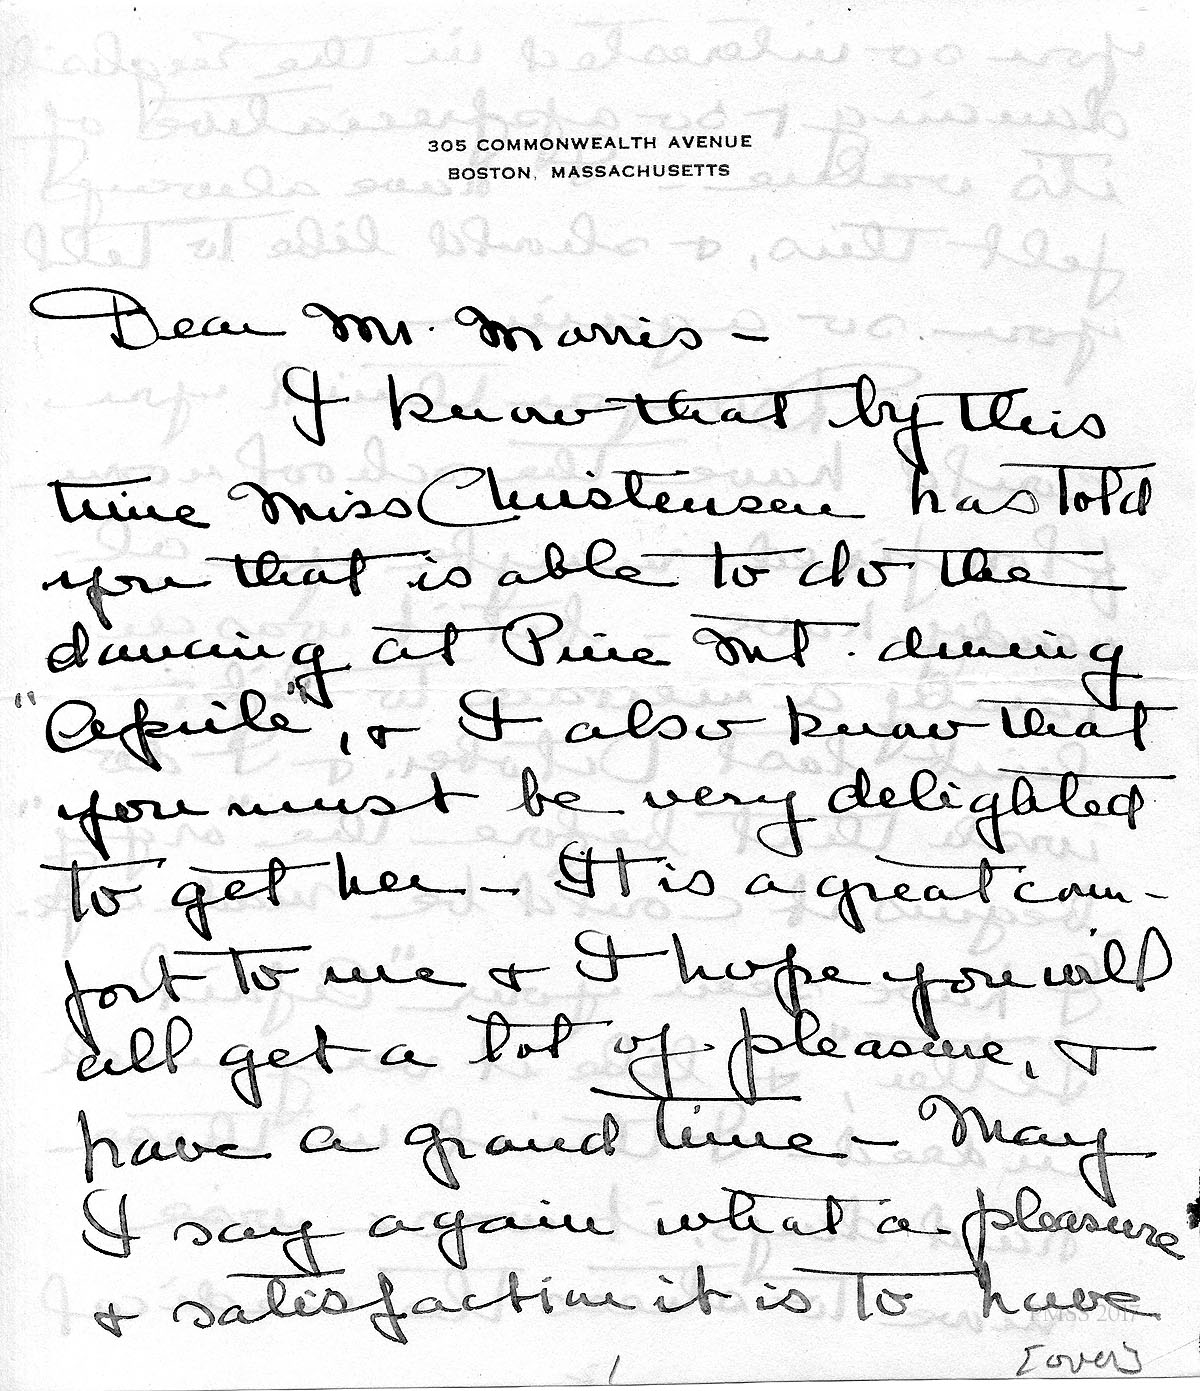 305 COMMONWEALTH AVENUE
BOSTON, MASSACHUSETTS
Dear Mr. Morris –
I know that by this
time Miss Christensen has told
you that is able to do the
dancing at Pine Mt. during
"Aprile", & I also know that
you must be very delighted
to get her – It is a great com-
fort to me & I hope you will
all get a lot of pleasure, &
have a grand time – May
I say again what a pleasure
& satisfaction it is to have
PMSS 2017
[over]
1